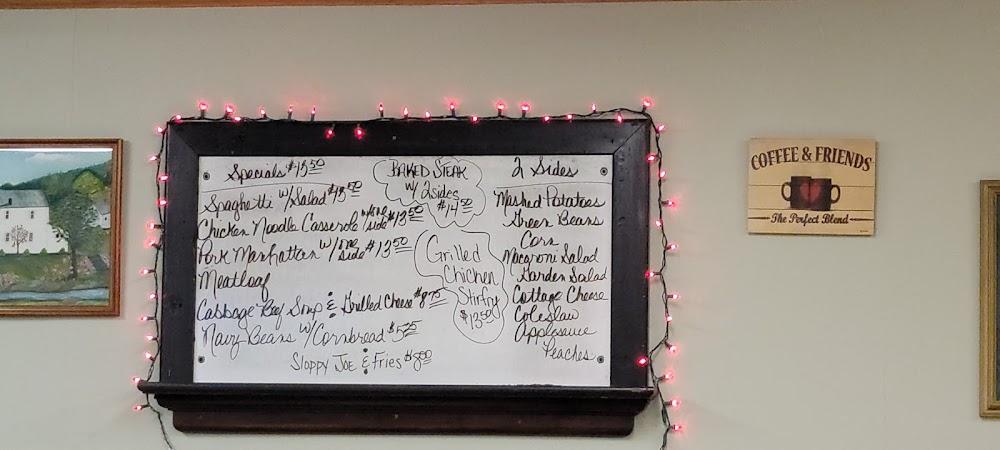 Specials $13.50
Spaghetti w/Salad $13.50
Chicken Noodle Casserole w/one side $13.50
Pork Manhattan w/one side $13.50
Meatloaf
Cabbage Beef Soup & Grilled Cheese $8.75
Navy Beans w/Cornbread $5.25
Sloppy Joe & Fries $8.00
BAKED STEAK
w/ 2 sides
$14.50
Grilled
Chicken
Stirfry
$13.50
2 Sides
Mashed Potatoes
Green Beans
Corn
Macaroni Salad
Garden Salad
Cottage Cheese
Coleslaw
Applesauce
Peaches
COFFEE & FRIENDS
The Perfect Blend